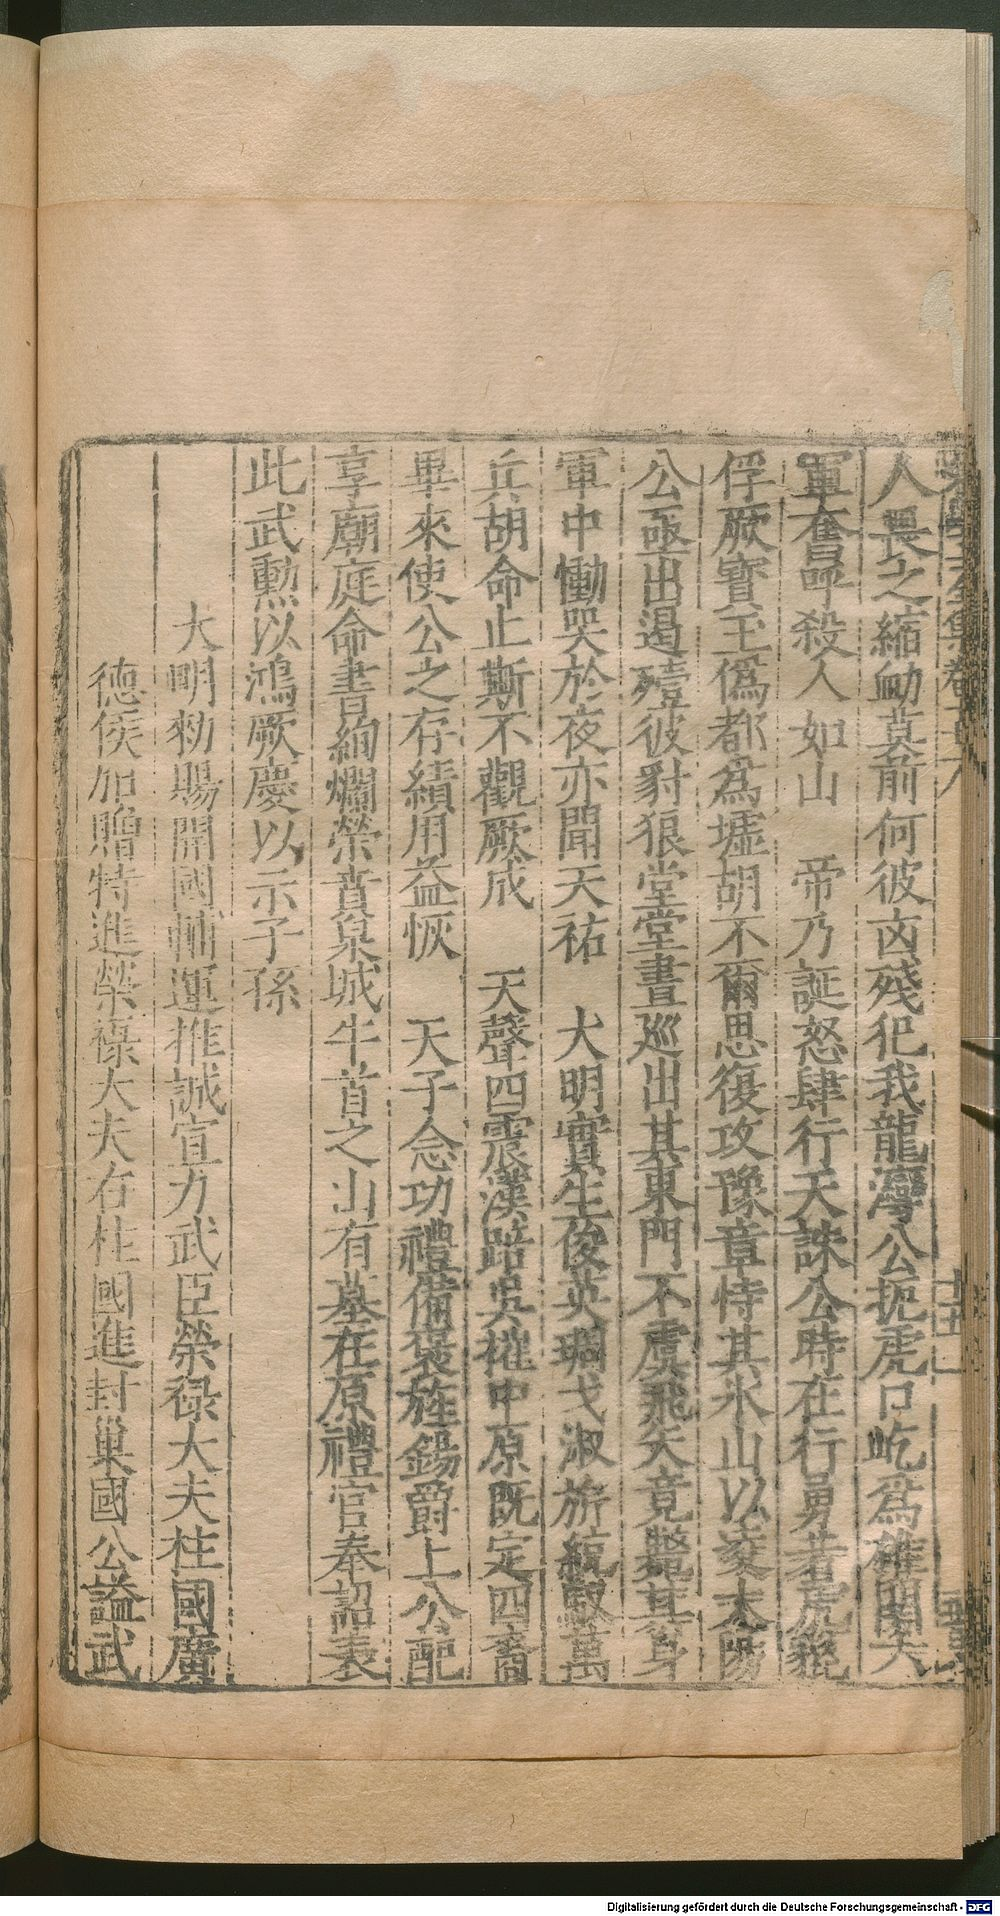 人畏之縮衄莫前何彼凶殘犯我龍灣公扼虎口屹爲雄關大
軍奮呼殺人如山　帝乃誕怒肆行天誅公時在行勇若虎貔
俘厥寶玉僞都爲墟胡不爾思復攻豫章恃其氷山以凌太陽
公亟出遏殪彼豺狼堂堂晝巡出其東門不虞飛矢竟斃其身
軍中慟哭於夜亦聞天祐　大明實生俊英琱戈淑旂統馭萬
兵胡命止斯不觀厥成　天聲四震漢踣吳摧中原既定四裔
畢來使公之存績用益恢　天子念功禮備褒旌錫爵上公配
享廟庭命書絢爛榮賁泉城牛首之山有墓在原禮官奉詔表
此武勲以鴻厥慶以示子孫
大明勑賜開國輔運推誠宣力武臣榮祿大夫柱國廣
德侯加贈特進榮祿大夫右柱國進封巢國公謚武
Digitalisierung gefördert durch die Deutsche Forschungsgemeinschaft - DFG